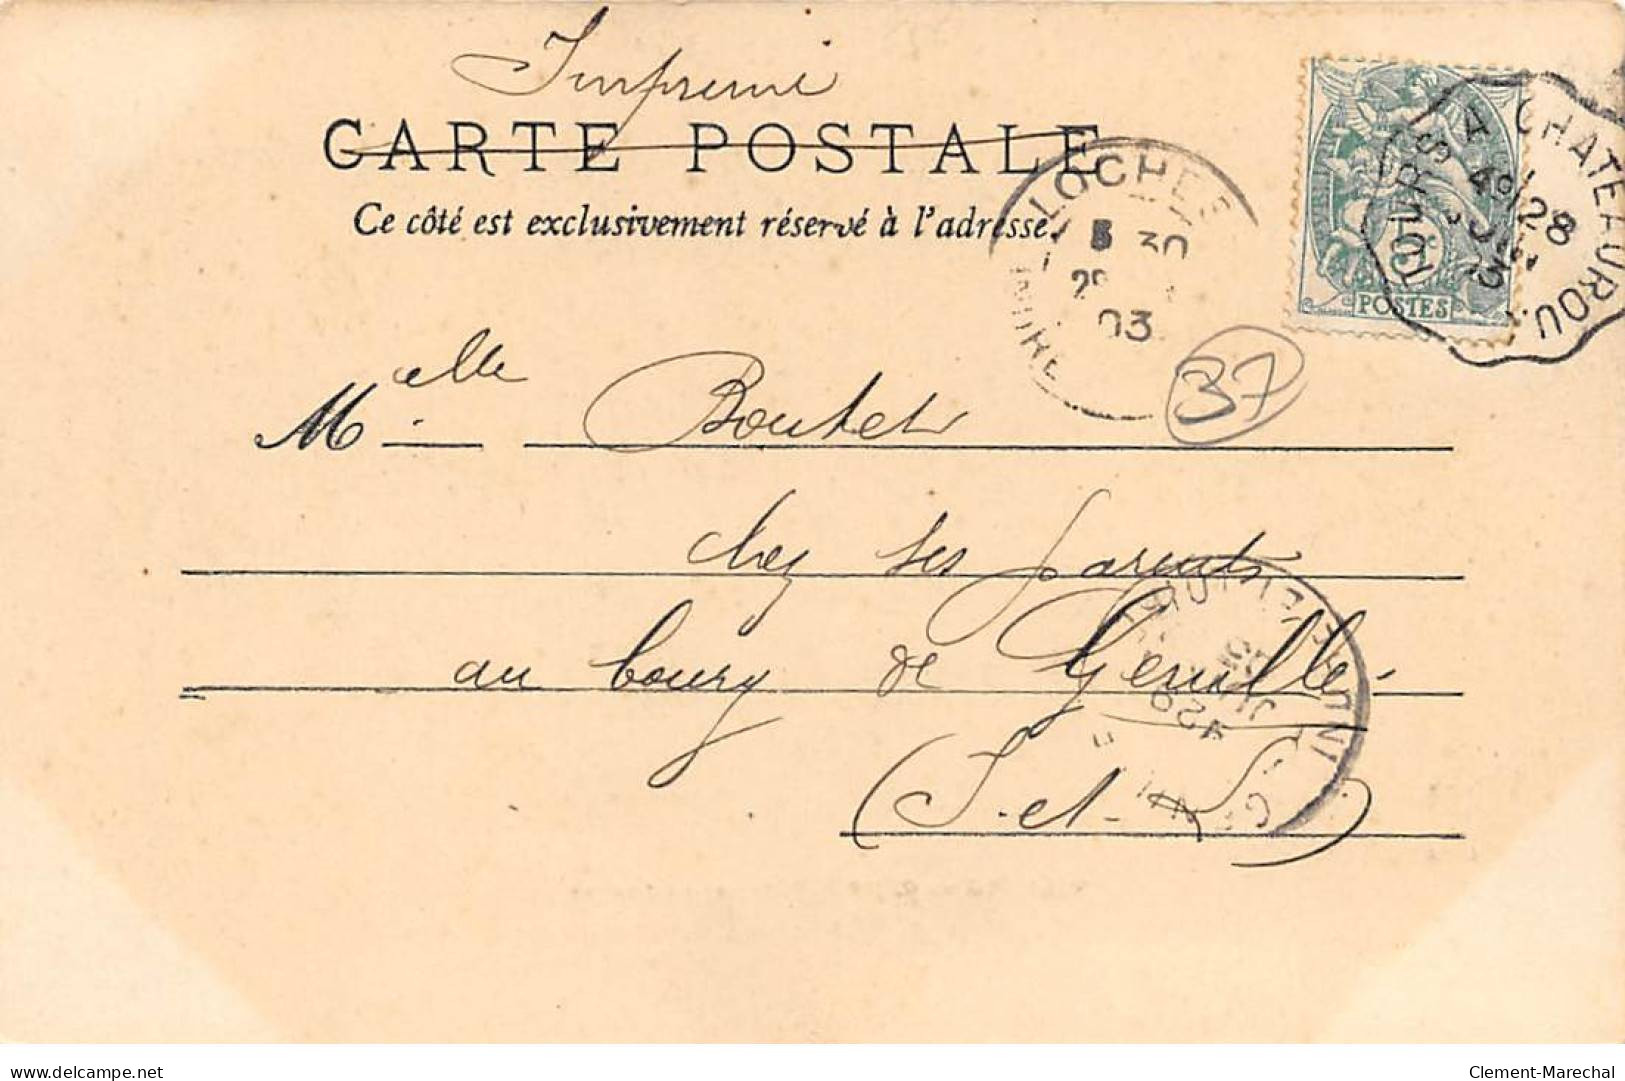 Imprimé
CARTE POSTALE
Ce côté est exclusivement réservé à l'adresse.
TOURS A CHATEAUROU
28
JUIN
03
5
POSTES
LOCHES
5 30
03
INDRE
37
Melle Boutet
chez ses parents
au bourg de Genillé
(I.-et-L.)
INDRE-ET-LOIRE
29
JUIN
03
Clement-Marechal